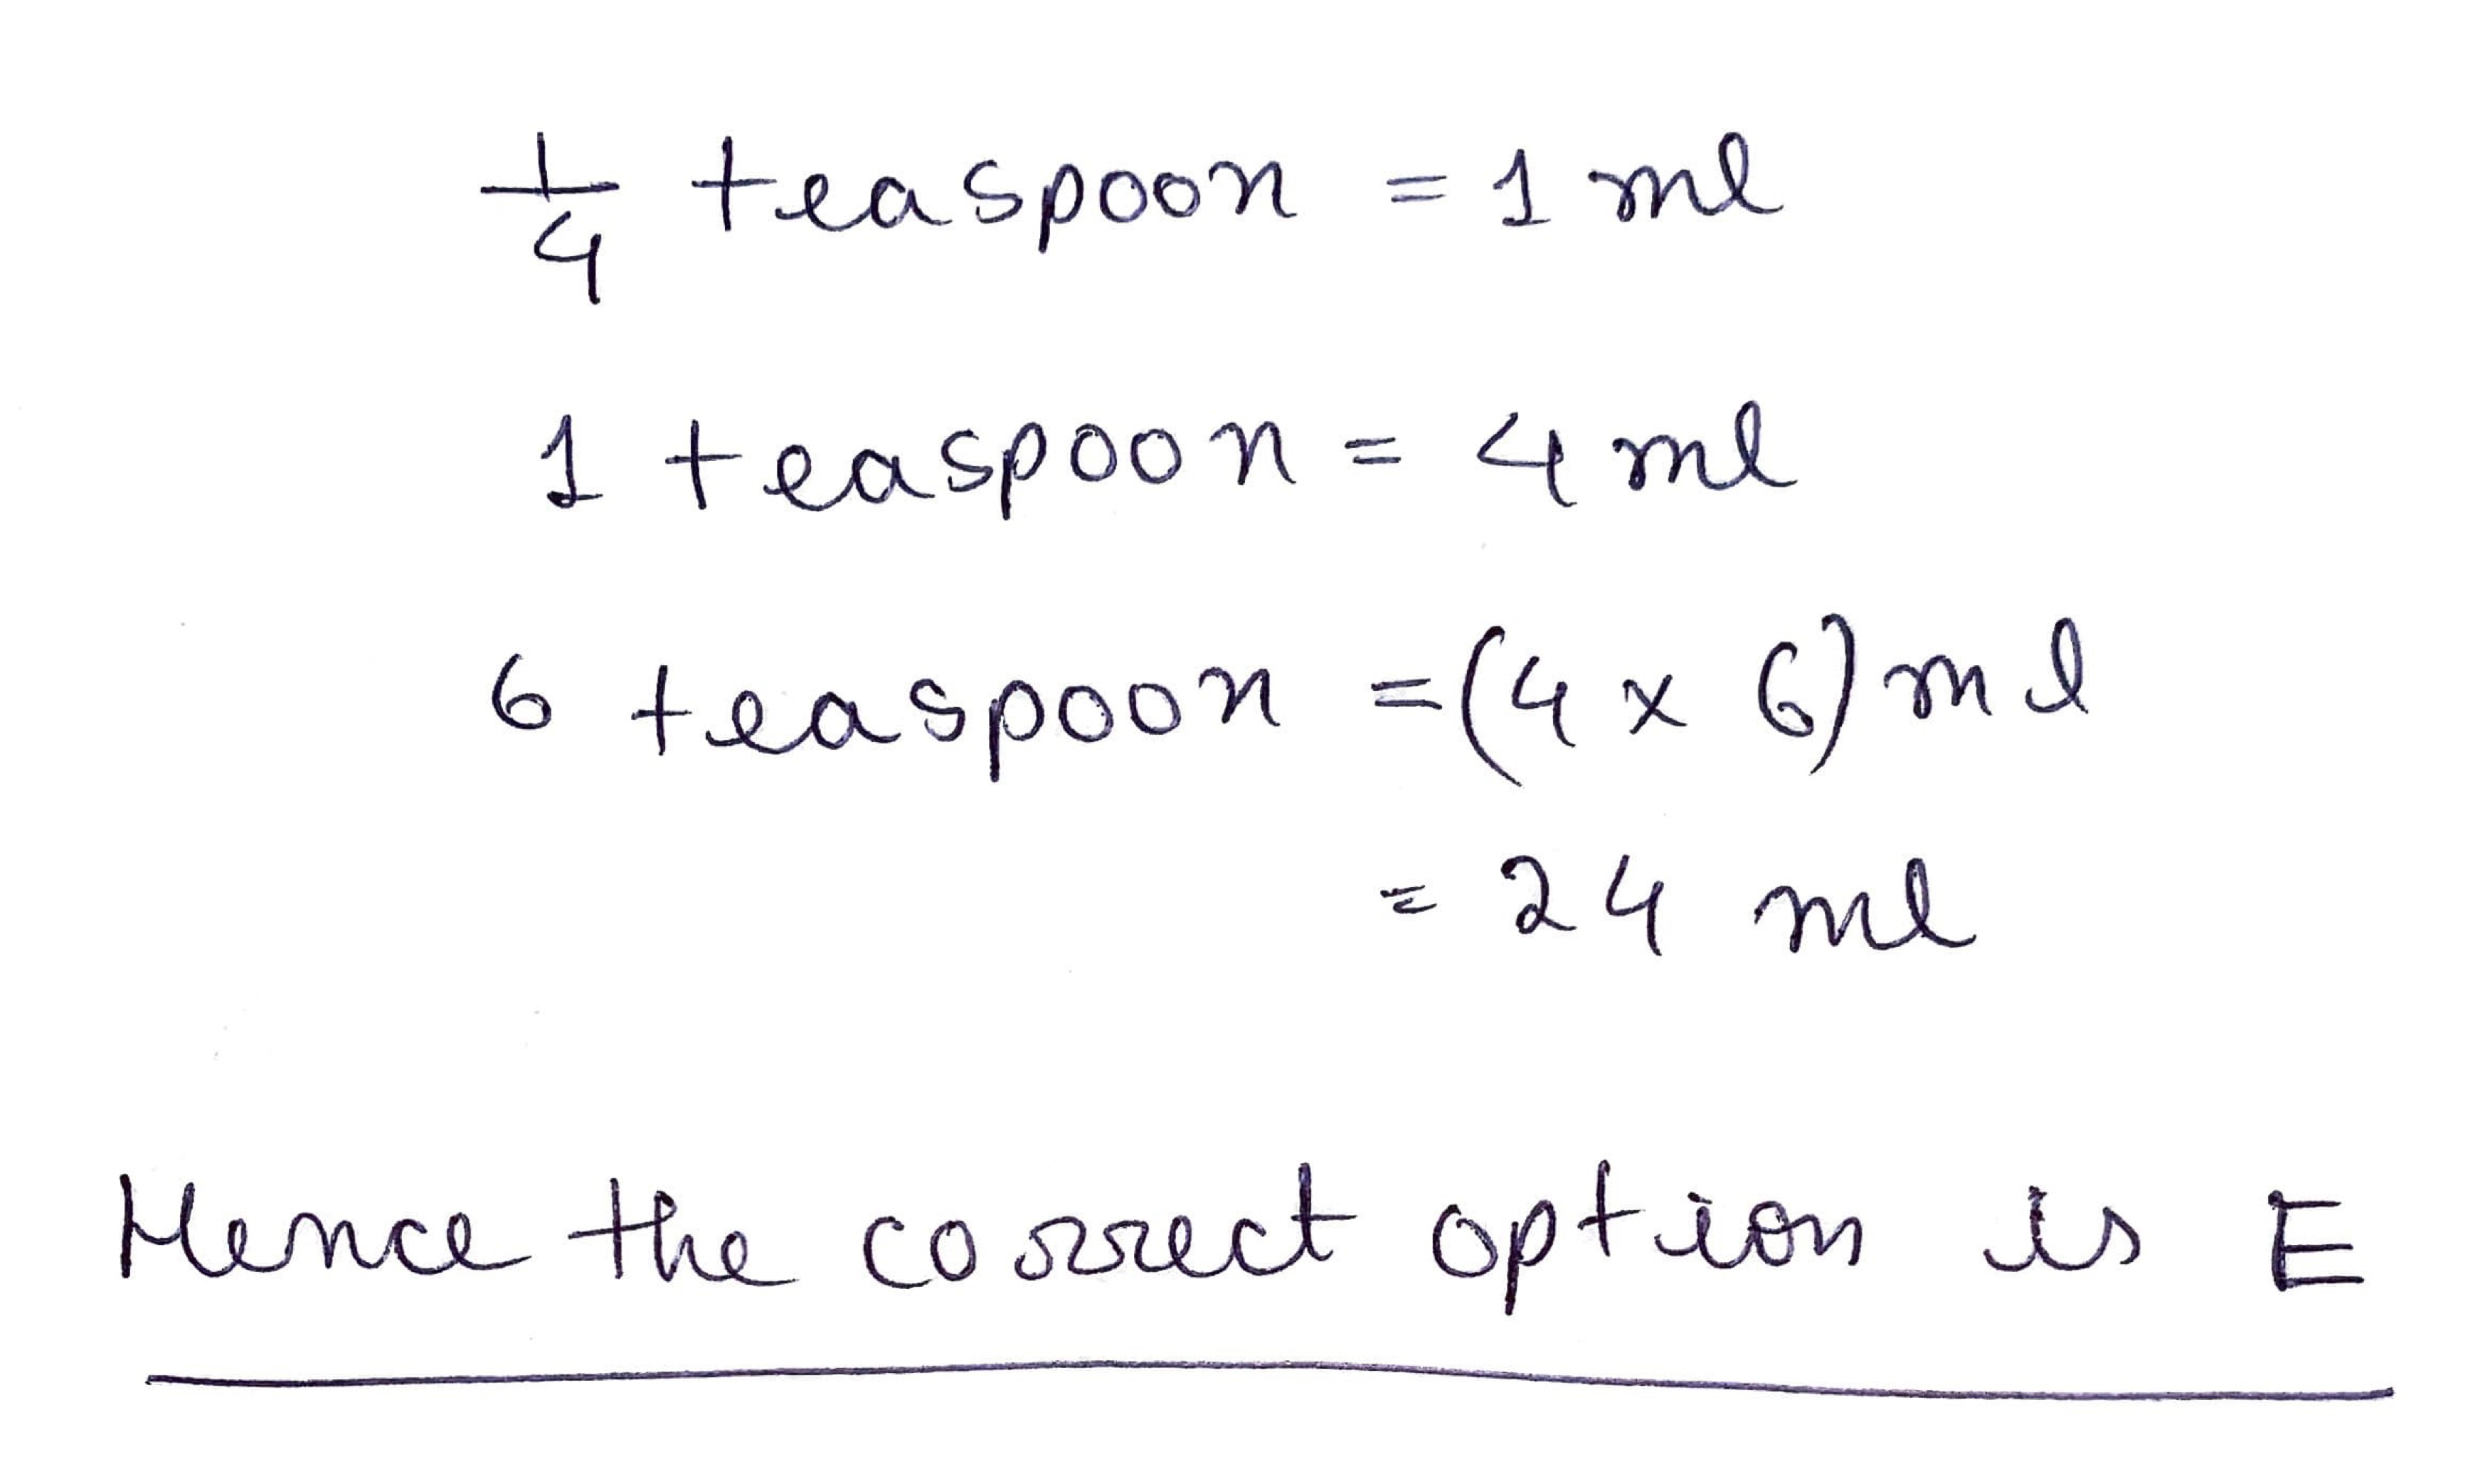 1/4 teaspoon = 1 ml
1 teaspoon = 4 ml
6 teaspoon = (4 x 6) ml
= 24 ml
Hence the correct option is E